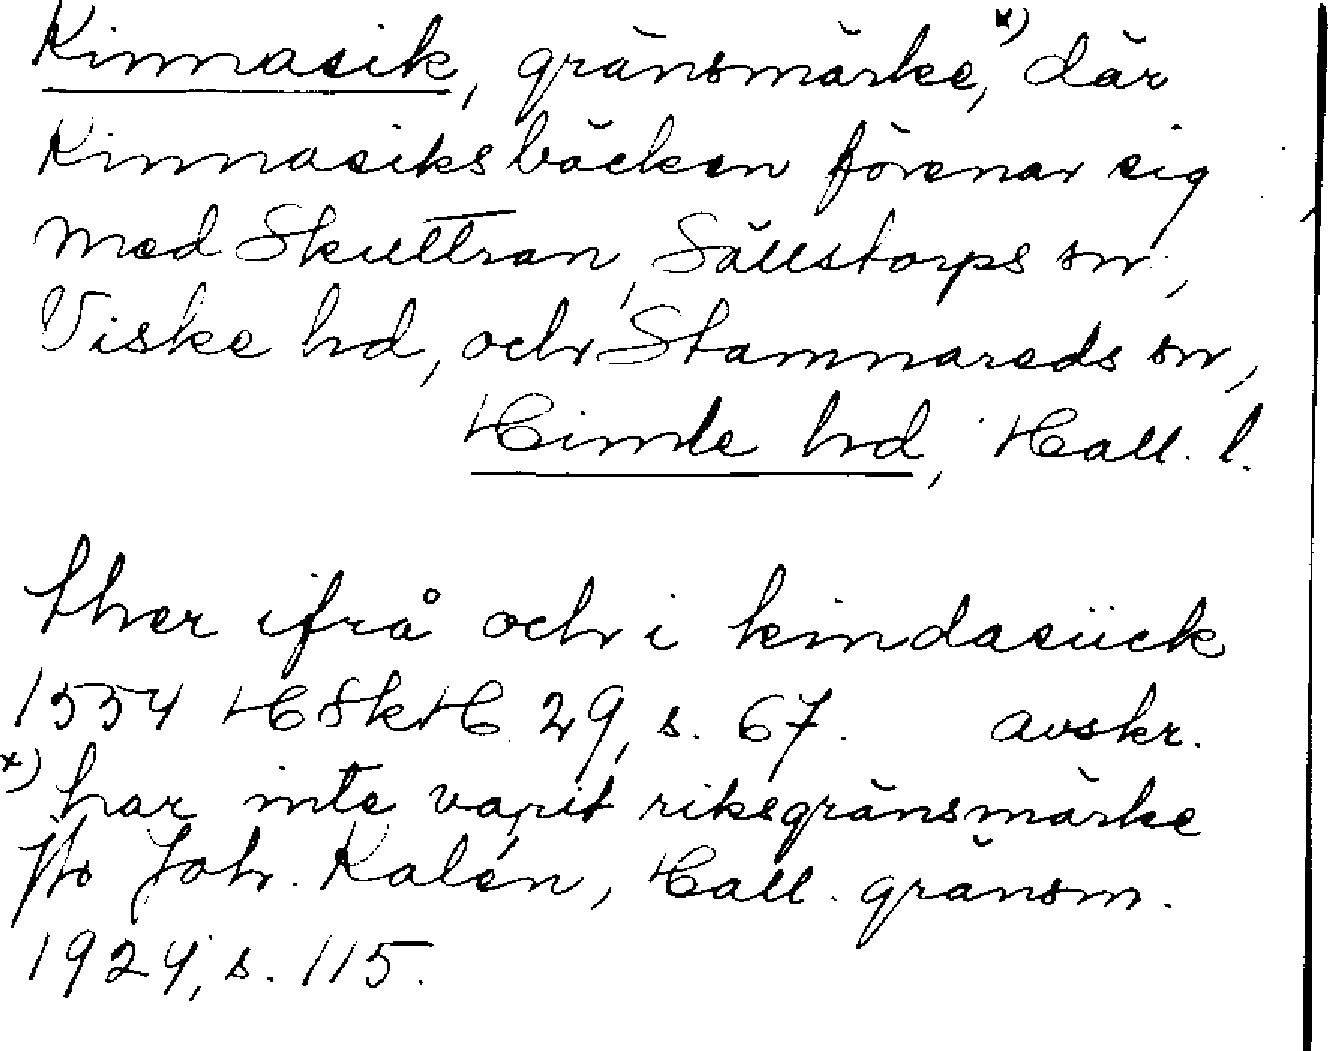 Kinnasik, gränsmärke,ˣ⁾ där
Kinnasiksbäcken förenar sig
med Skuttran, Sällstorps sn,
Viske hd, och Stamnareds sn,
Himle hd, Hall. l.
ther ifrå och i kindasiick
1554 HSkH 29, s. 67. avskr.
ˣ⁾ har inte varit riksgränsmärke
Joh. Kalén, Hall. gränsm.
1924, s. 115.